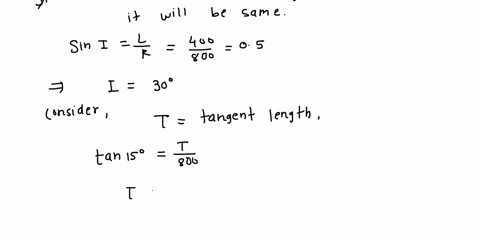 it will be same.
Sin I = L/R = 400/800 = 0.5
⇒ I = 30°
Consider, T = tangent length,
tan 15° = T/800
T